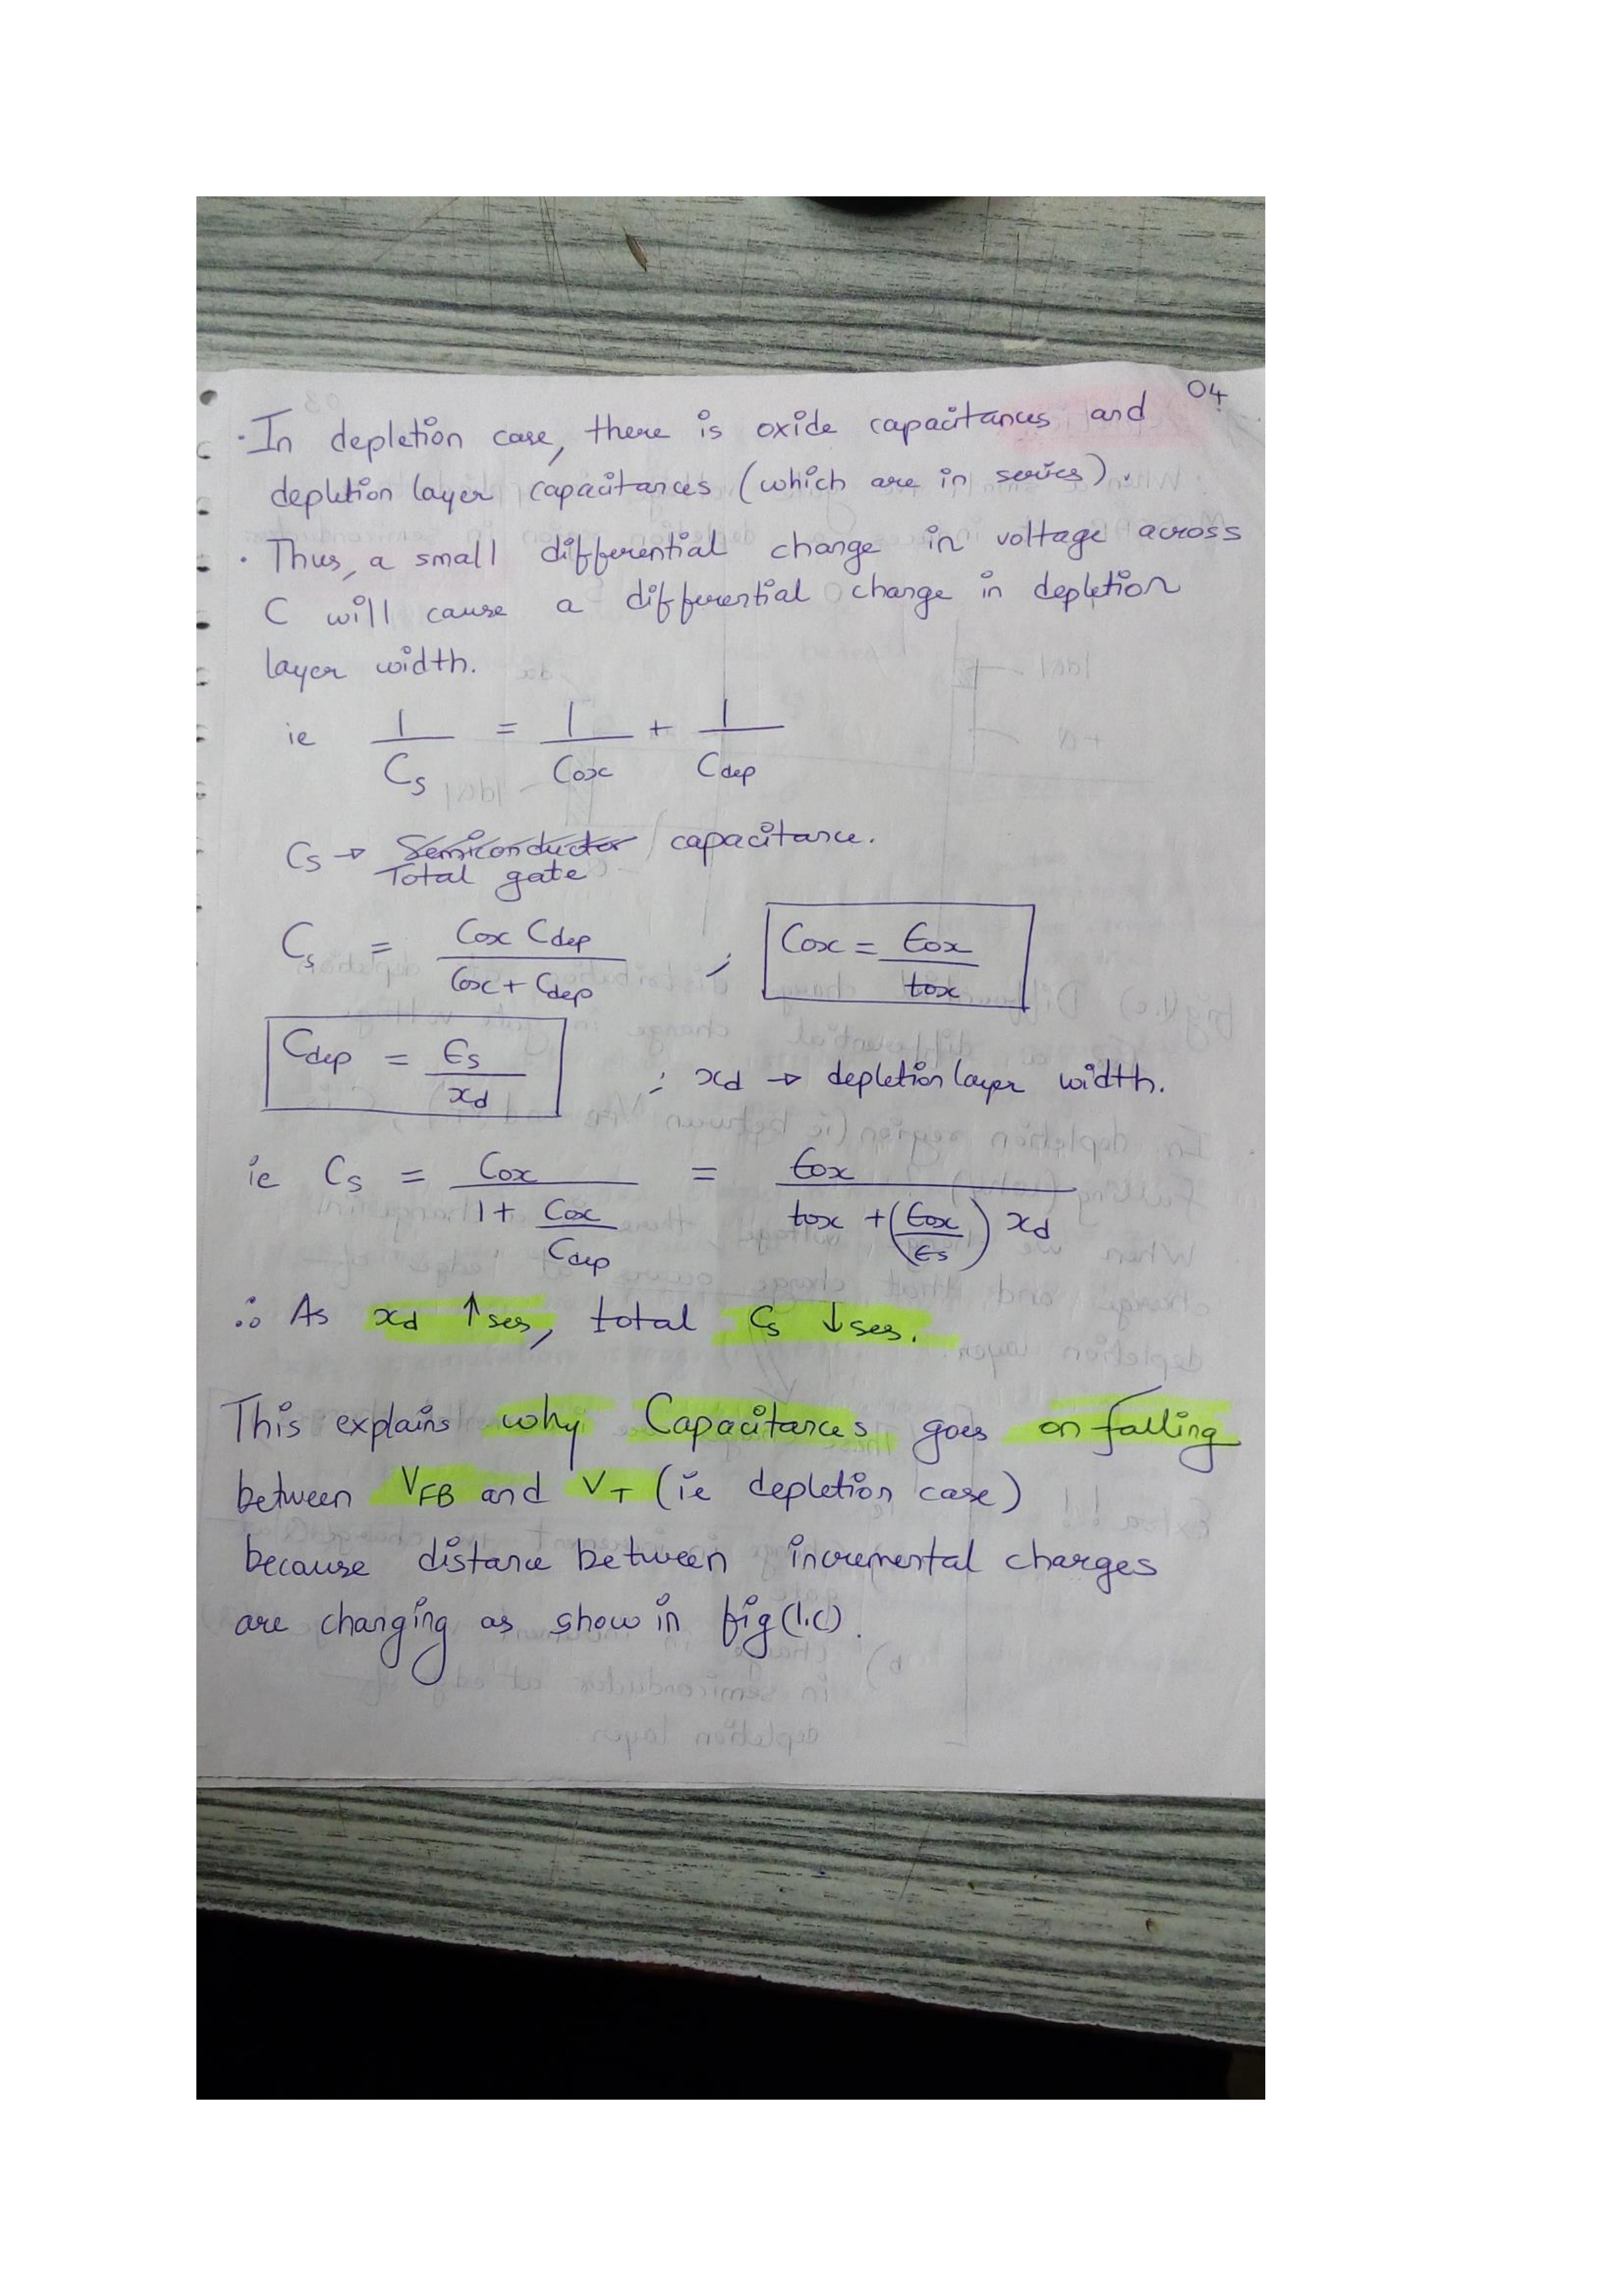 04
· In depletion case, there is oxide capacitances and
depletion layer capacitances (which are in series).
· Thus, a small differential change in voltage across
C will cause a differential change in depletion
layer width.
ie 1/Cs = 1/Cox + 1/Cdep
Cs → Semiconductor capacitance.
Total gate
Cs = Cox Cdep / Cox + Cdep ; Cox = ϵox / tox
Cdep = ϵs / xd ; xd → depletion layer width.
ie Cs = Cox / 1 + Cox/Cdep = ϵox / tox + (ϵox/ϵs) xd
∴ As xd ↑ses, total Cs ↓ses.
This explains why Capacitances goes on falling
between VFB and VT (ie depletion case)
because distance between incremental charges
are changing as show in fig(1.c).